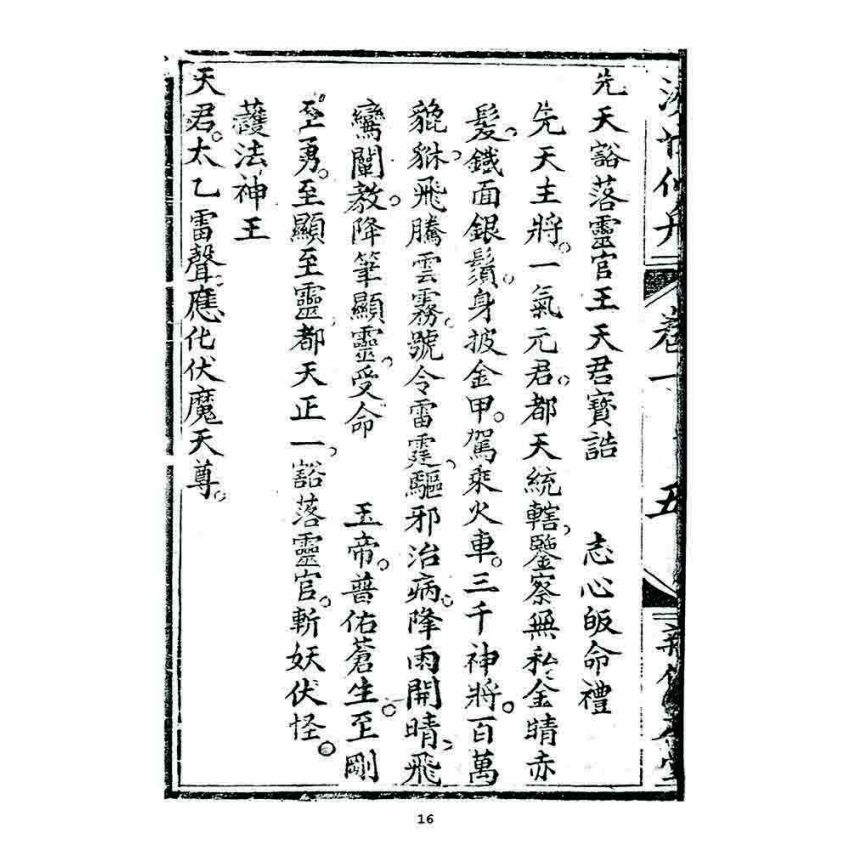 先天豁落靈官王天君寶誥 志心皈命禮
先天主將。一氣元君。都天統轄。鑒察無私。金睛赤
髮。鐵面銀鬚。身披金甲。駕乘火車。三千神將。百萬
貔貅。飛騰雲霧。號令雷霆。驅邪治病。降雨開晴。飛
鸞闡教。降筆顯靈。受命 玉帝。普佑蒼生。至剛
至勇。至顯至靈。都天正一。豁落靈官。斬妖伏怪。
護法神王
天君。太乙雷聲應化伏魔天尊。
16